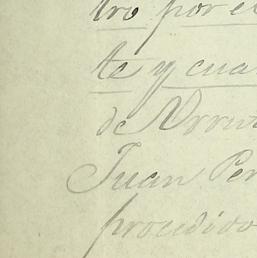 tro por el
te y cua
de Urru
Juan Per
procedido